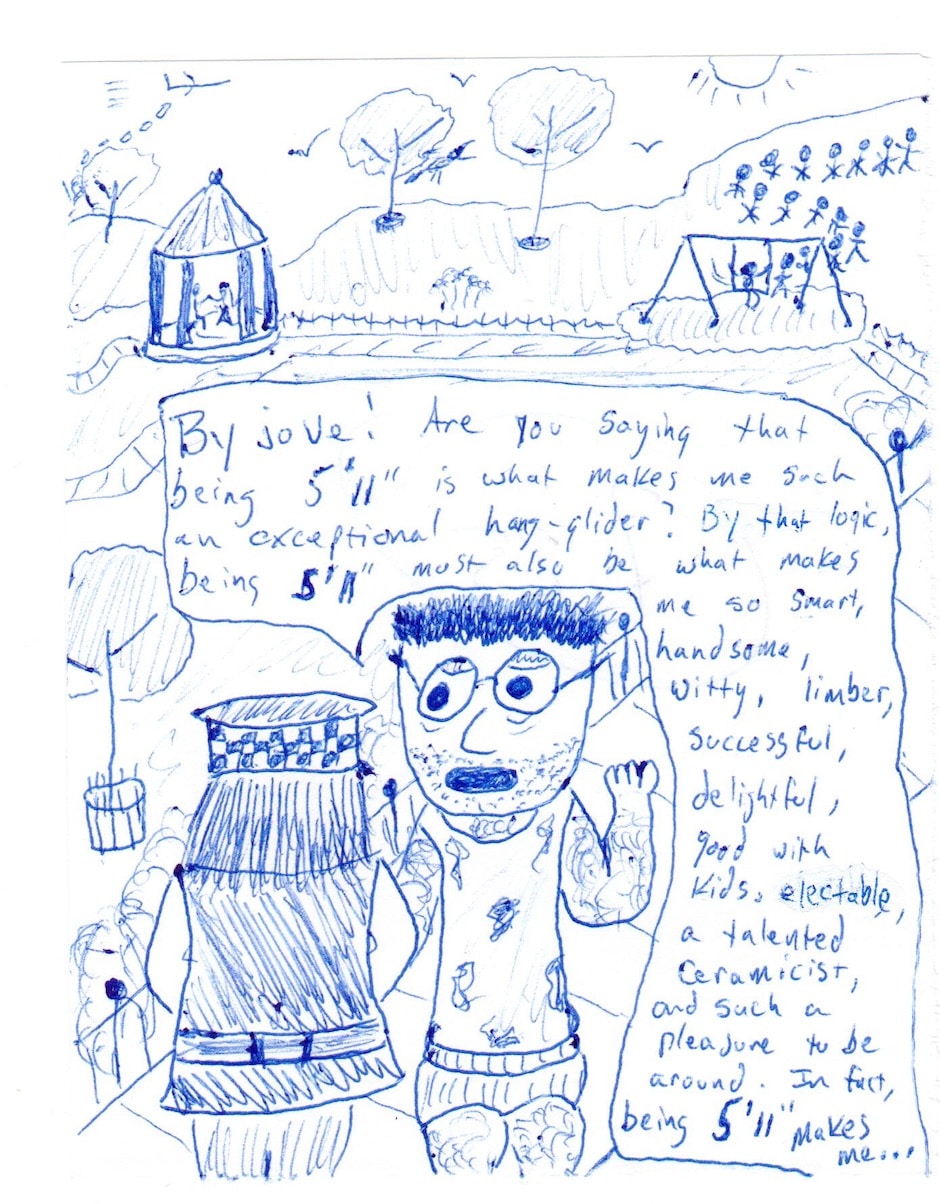 By jove! Are you saying that
being 5'11" is what makes me such
an exceptional hang-glider? By that logic,
being 5'11" must also be what makes
me so smart,
handsome,
witty, limber,
successful,
delightful,
good with
kids, electable,
a talented
ceramicist,
and such a
pleasure to be
around. In fact,
being 5'11" makes
me...